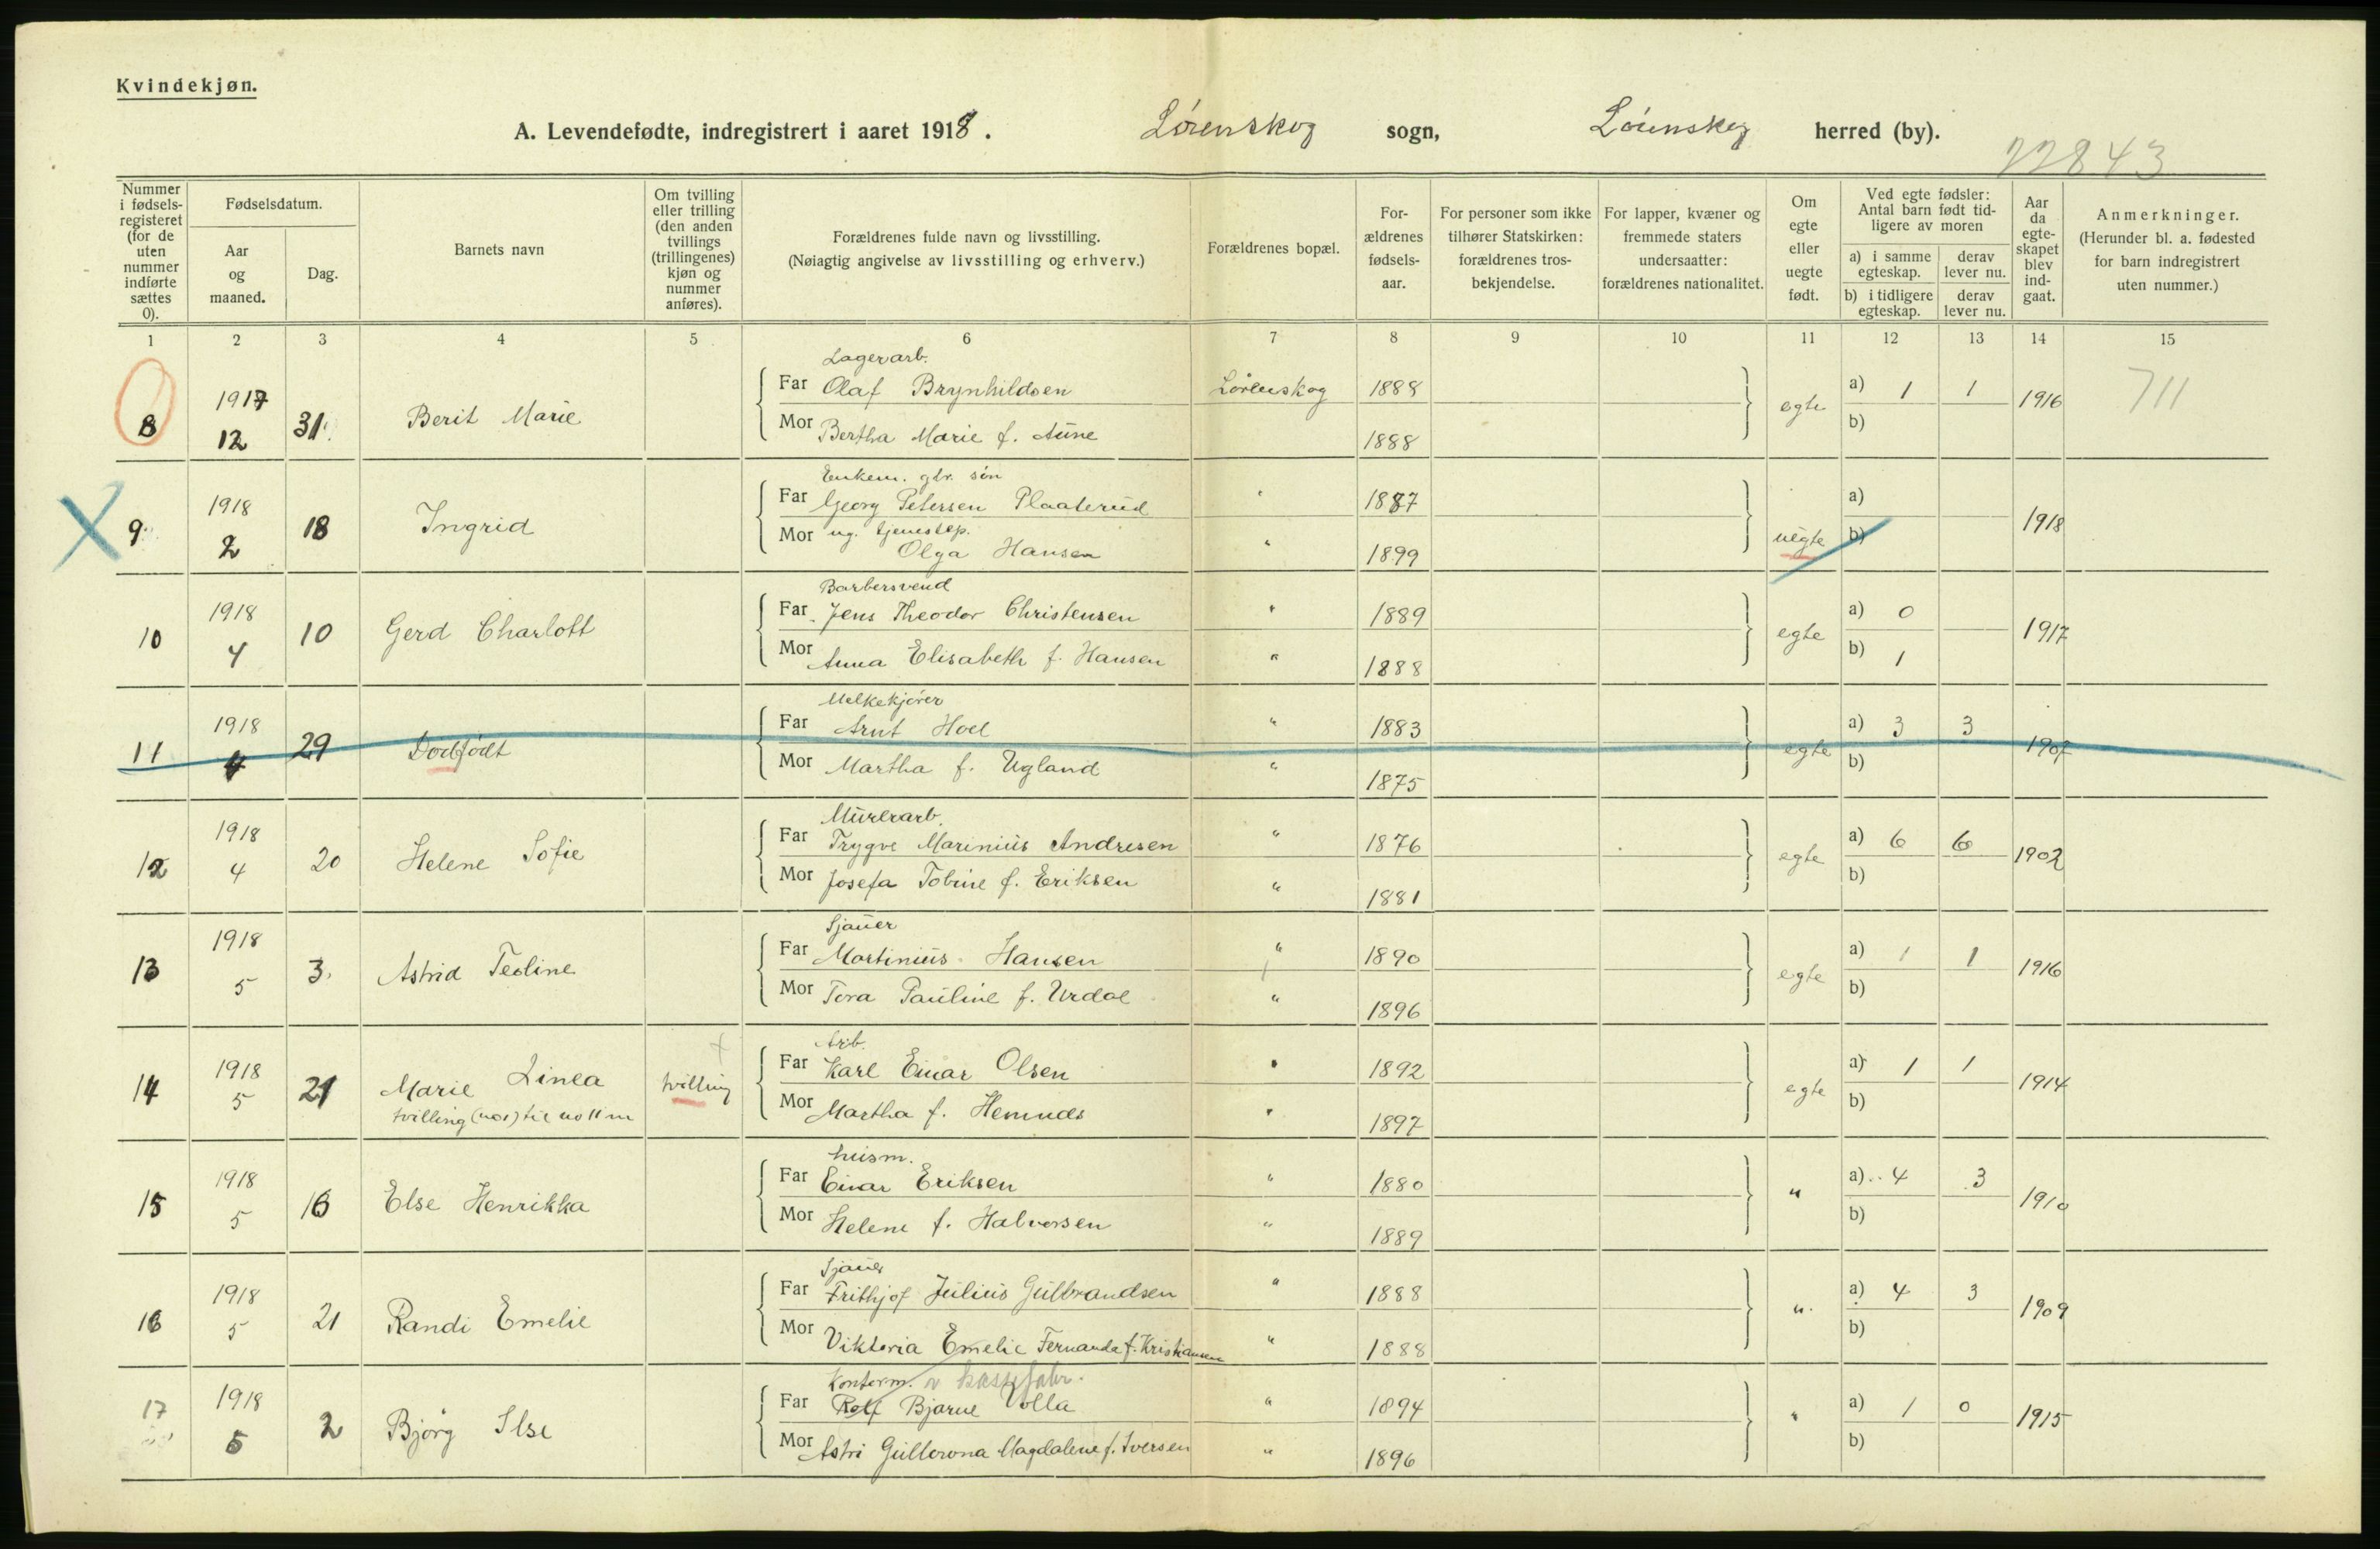 Kvindekjøn.
A. Levendefødte, indregistrert i aaret 1918. Lørenskog sogn, Lørenskog herred (by).
22843
Nummer i fødselsregisteret (for de uten nummer indførte sættes 0).
Fødselsdatum.
Aar og maaned.
Dag.
Barnets navn
Om tvilling eller trilling (den anden tvillings (trillingenes) kjøn og nummer anføres).
Forældrenes fulde navn og livsstilling.
(Nøiagtig angivelse av livsstilling og erhverv.)
Forældrenes bopæl.
Forældrenes fødselsaar.
For personer som ikke tilhører Statskirken: forældrenes trosbekjendelse.
For lapper, kvæner og fremmede staters undersaatter: forældrenes nationalitet.
Om egte eller uegte født.
Ved egte fødsler: Antal barn født tidligere av moren
a) i samme egteskap.
derav lever nu.
b) i tidligere egteskap.
derav lever nu.
Aar da egteskapet blev indgaat.
Anmerkninger.
(Herunder bl. a. fødested for barn indregistrert uten nummer.)
1 2 3 4 5 6 7 8 9 10 11 12 13 14 15
Lagerarb.
8 1917 12 31 Berit Marie Far Olaf Brynhildsen Lørenskog 1888 egte a) 1 1 1916 711
Mor Bertha Marie f. Aune 1888 b)
Enkem. gbr. søn
9 1918 2 18 Ingrid Far Georg Petersen Plaaterud " 1887 uegte a) 1918
Mor ug. tjenestep. Olga Hansen " 1899 b)
Barbersvend
10 1918 4 10 Gerd Charlott Far Jens Theodor Christensen " 1889 egte a) 0 1917
Mor Anna Elisabeth f. Hansen " 1888 b) 1
Melkekjører
11 1918 4 29 Dødfødt Far Arnt Hoel " 1883 egte a) 3 3 1907
Mor Martha f. Ugland " 1875 b)
Murerarb.
12 1918 4 20 Helene Sofie Far Trygve Marinius Andresen " 1876 egte a) 6 6 1902
Mor Josefa Tobine f. Eriksen " 1881 b)
Sjauer
13 1918 5 3. Astrid Teoline Far Martinius Hansen " 1890 egte a) 1 1 1916
Mor Tora Pauline f. Urdal " 1896 b)
Arb.
14 1918 5 21 Marie Linea tvilling Far Karl Einar Olsen " 1892 egte a) 1 1 1914
tvilling (no 1) til no 11 m
Mor Martha f. " 1897 b)
husm.
15 1918 5 16 Else Henrikka Far Einar Eriksen " 1880 " a) 4 3 1910
Mor Helene f. Halvorsen " 1889 b)
Sjauer
16 1918 5 21 Randi Emelie Far Frithjof Julius Gulbrandsen " 1888 " a) 4 3 1909
Mor Viktoria Emelie Fernanda f. Kristiansen " 1888 b)
Kontorm.
17 1918 5 2 Bjørg Ilse Far Rolf Bjarne Volla " 1894 " a) 1 0 1915
Mor Astri Magdalene f. Iversen " 1896 b)